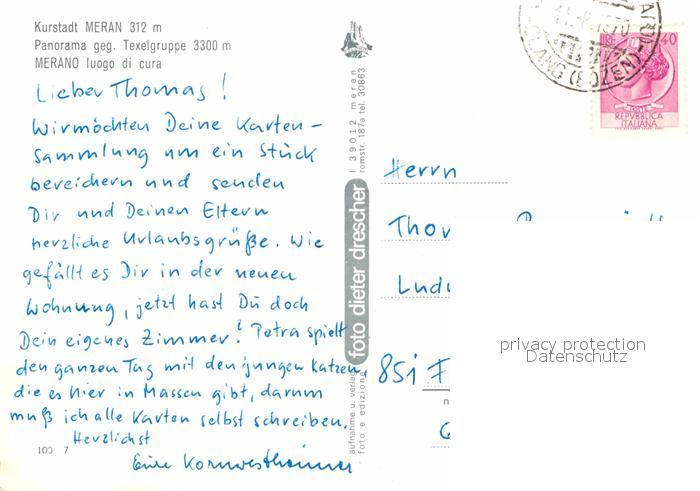 Kurstadt MERAN 312 m
Panorama geg. Texelgruppe 3300 m
MERANO luogo di cura
Lieber Thomas!
Wir möchten Deine Karten-
sammlung um ein Stück
bereichern und senden
Dir und Deinen Eltern
herzliche Urlaubsgrüße. Wie
gefällt es Dir in der neuen
Wohnung, jetzt hast Du doch
Dein eigenes Zimmer! Petra spielt
den ganzen Tag mit den jungen Katzen,
die es hier in Massen gibt, darum
muß ich alle Karten selbst schreiben.
Herzlichst
Eure Kornwestheimer
100 7
foto dieter drescher
I 39012 meran
romstr. 187a tel. 30863
aufnahme u. verlag
foto e edizione
(BOZEN)
LIRE 40
POSTE
REPVBBLICA
ITALIANA
Herrn
Thom
Ludw
851 F
privacy protection
Datenschutz